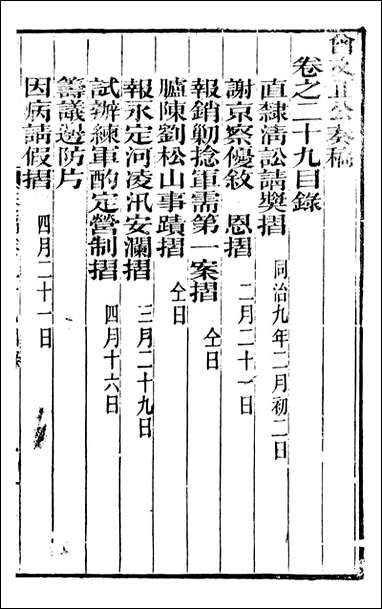 曾文正公奏稿
卷之二十九目錄
直隸淸訟請奬摺 同治九年二月初二日
謝京察優敘 恩摺 二月二十一日
報銷勦捻軍需第一案摺 仝日
臚陳劉松山事蹟摺 仝日
報永定河凌汛安瀾摺 三月二十九日
試辦練軍酌定營制摺 四月十六日
籌議邊防片
因病請假摺 四月二十一日